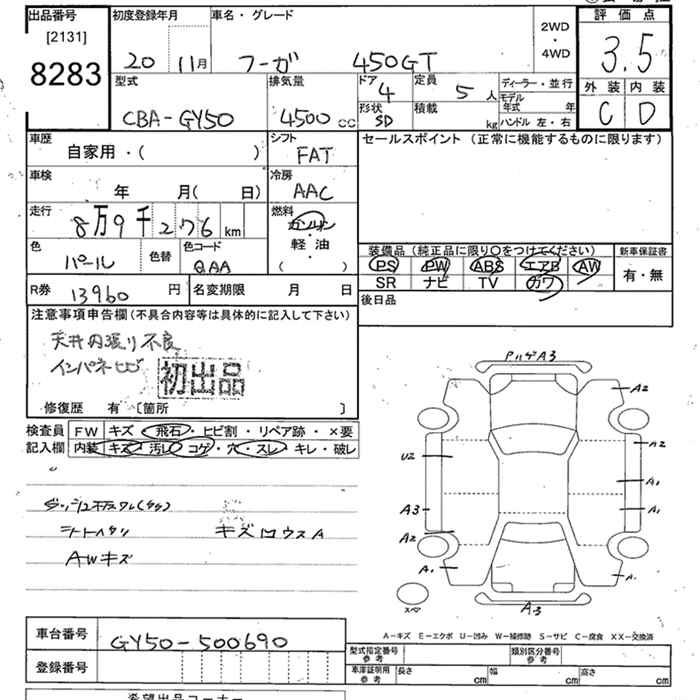 出品番号 初度登録年月 車名・グレード 評価点
[2131] 20 11月 フーガ 450GT 2WD・4WD 3.5
8283 外装 内装
C D
型式 排気量 ドア 定員 ディーラー・並行
CBA-GY50 4500cc 4 5人 モデル年式 年
形状 積載 ハンドル 左・右
SD kg
車歴 シフト セールスポイント(正常に機能するものに限ります)
自家用・( ) FAT
車検 冷房
年 月( 日) AAC
走行 燃料
8万9千276km ガソリン・軽・油・( )
色 色替 色コード 装備品(純正品に限り○をつけてください) 新車保証書
パール QAA PS PW ABS エアB AW 有・無
R券 13960円 名変期限 月 日 SR ナビ TV カワ
後日品
注意事項申告欄(不具合内容等は具体的に記入して下さい)
天井内張り不良
インパネ
初出品
修復歴 有[箇所 ]
検査員 FW キズ・飛石・ヒビ割・リペア跡・×要
記入欄 内装 キズ・汚レ・コゲ・穴・スレ・キレ・破レ
キズ
AWキズ
アルゲA3
A2
U2 A2
A1
A3 A1
A2
A1 A1
スペア A3
A-キズ E-エクボ U-凹み W-補修跡 S-サビ C-腐食 XX-交換済
車台番号 GY50-500690
型式指定番号参考 類別区分番号参考
登録番号 車庫証明用参考 長さ cm 幅 cm 高さ cm
希望出品コーナー